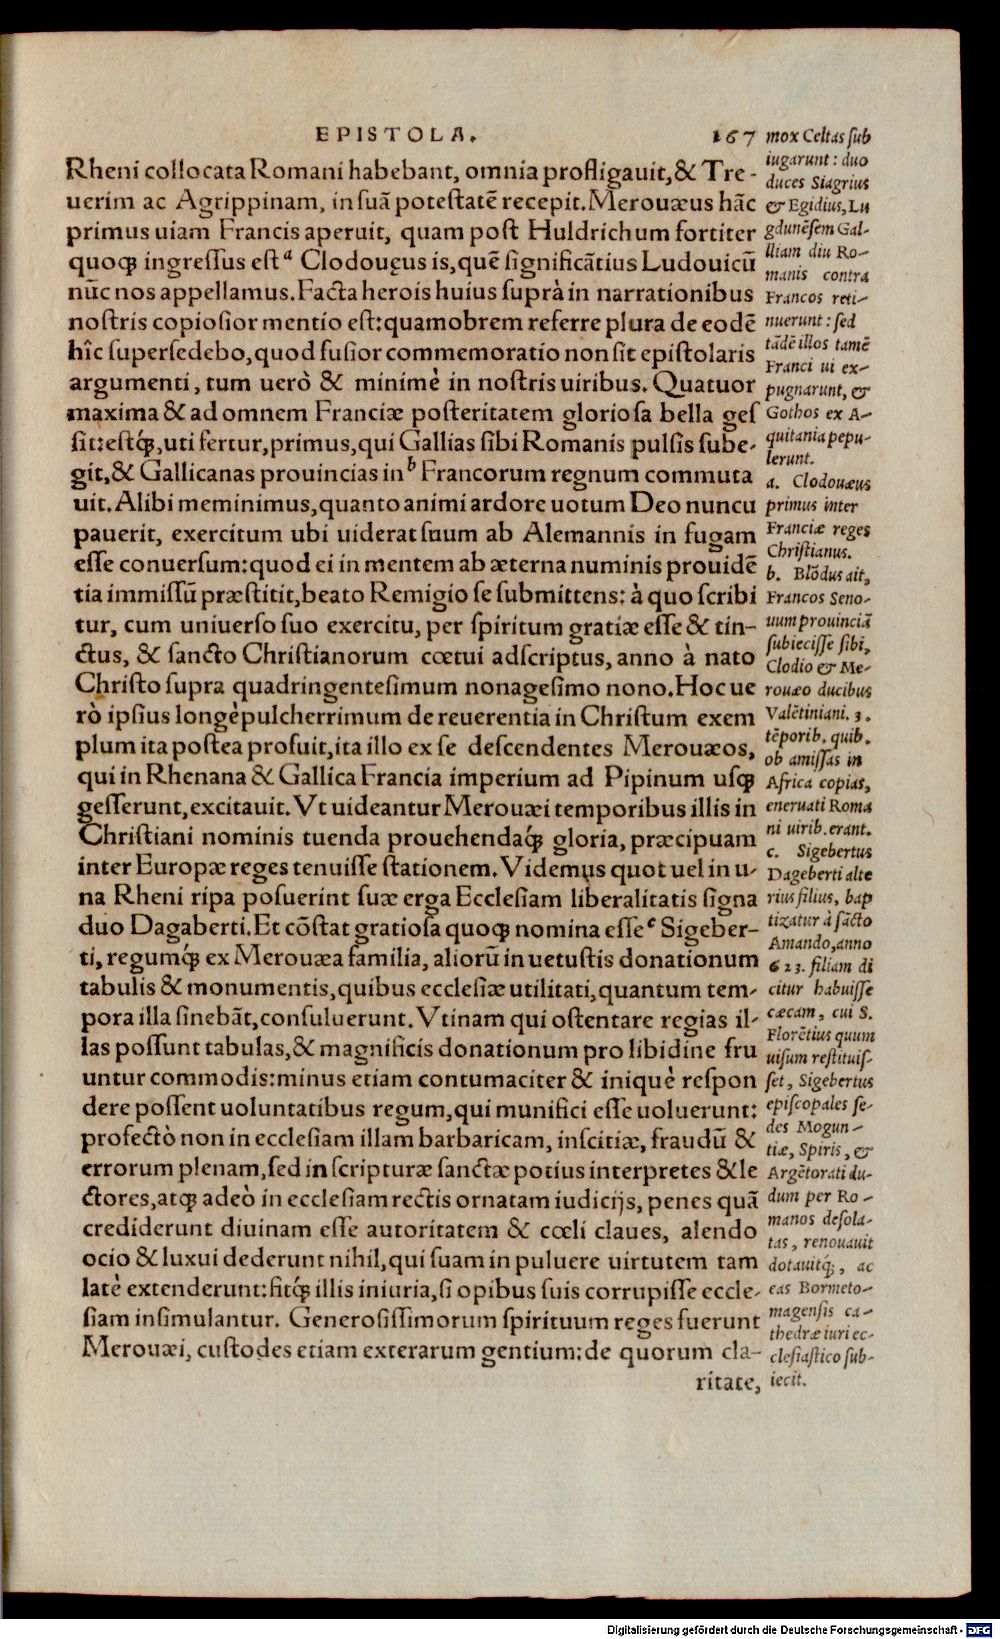 EPISTOLA. 167
Rheni collocata Romani habebant, omnia profligauit, & Tre-
uerim ac Agrippinam, in suā potestatē recepit. Merouæus hāc
primus uiam Francis aperuit, quam post Huldrichum fortiter
quoq; ingressus est ᵃ Clodouęus is, quē significātius Ludouicū
nūc nos appellamus. Facta herois huius suprà in narrationibus
nostris copiosior mentio est: quamobrem referre plura de eodē
hîc supersedebo, quod fusior commemoratio non sit epistolaris
argumenti, tum uerò & minimè in nostris uiribus. Quatuor
maxima & ad omnem Franciæ posteritatem gloriosa bella ges
sit: estq́;, uti fertur, primus, qui Gallias sibi Romanis pulsis sube-
git, & Gallicanas prouincias in ᵇ Francorum regnum commuta
uit. Alibi meminimus, quanto animi ardore uotum Deo nuncu
pauerit, exercitum ubi uiderat suum ab Alemannis in fugam
esse conuersum: quod ei in mentem ab æterna numinis prouidē
tia immissū præstitit, beato Remigio se submittens: à quo scribi
tur, cum uniuerso suo exercitu, per spiritum gratiæ esse & tin-
ctus, & sancto Christianorum cœtui adscriptus, anno à nato
Christo supra quadringentesimum nonagesimo nono. Hoc ue
rò ipsius longè pulcherrimum de reuerentia in Christum exem
plum ita postea profuit, ita illo ex se descendentes Merouæos,
qui in Rhenana & Gallica Francia imperium ad Pipinum usq;
gesserunt, excitauit. Vt uideantur Merouæi temporibus illis in
Christiani nominis tuenda prouehendaq́; gloria, præcipuam
inter Europæ reges tenuisse stationem. Videmus quot uel in u-
na Rheni ripa posuerint suæ erga Ecclesiam liberalitatis signa
duo Dagaberti. Et cōstat gratiosa quoq; nomina esse ᶜ Sigeber-
ti, regumq́; ex Merouæa familia, aliorū in uetustis donationum
tabulis & monumentis, quibus ecclesiæ utilitati, quantum tem-
pora illa sinebāt, consuluerunt. Vtinam qui ostentare regias il-
las possunt tabulas, & magnificis donationum pro libidine fru
untur commodis: minus etiam contumaciter & iniquè respon
dere possent uoluntatibus regum, qui munifici esse uoluerunt:
profectò non in ecclesiam illam barbaricam, inscitiæ, fraudū &
errorum plenam, sed in scripturæ sanctæ potius interpretes & le
ctores, atq; adeò in ecclesiam rectis ornatam iudicijs, penes quā
crediderunt diuinam esse autoritatem & cœli claues, alendo
ocio & luxui dederunt nihil, qui suam in puluere uirtutem tam
latè extenderunt: fitq́; illis iniuria, si opibus suis corrupisse eccle-
siam insimulantur. Generosissimorum spirituum reges fuerunt
Merouæi, custodes etiam exterarum gentium: de quorum cla-
ritate,
mox Celtas sub
iugarunt: duo
duces Siagrius
& Egidius, Lu
gdunēsem Gal-
lliam diu Ro-
manis contra
Francos reti-
nuerunt: sed
tādē illos tamē
Franci ui ex-
pugnarunt, &
Gothos ex A-
quitania pepu-
lerunt.
a. Clodouæus
primus inter
Franciæ reges
Christianus.
b. Blōdus ait,
Francos Seno-
uum prouinciā
subiecisse sibi,
Clodio & Me-
rouæo ducibus
Valētiniani. 3.
tēporib. quib.
ob amissas in
Africa copias,
eneruati Roma
ni uirib. erant.
c. Sigebertus
Dagaberti alte
rius filius, bap
tizatur à sācto
Amando, anno
623. filiam di
citur habuisse
cæcam, cui S.
Florētius quum
uisum restituis-
set, Sigebertus
episcopales se-
des Mogun-
tiæ, Spiris, &
Argētorati du-
dum per Ro-
manos desola-
tas, renouauit
dotauitq́;, ac
eas Bormeto-
magensis ca-
thedræ iuri ec-
clesiastico sub-
iecit.
Digitalisierung gefördert durch die Deutsche Forschungsgemeinschaft - DFG